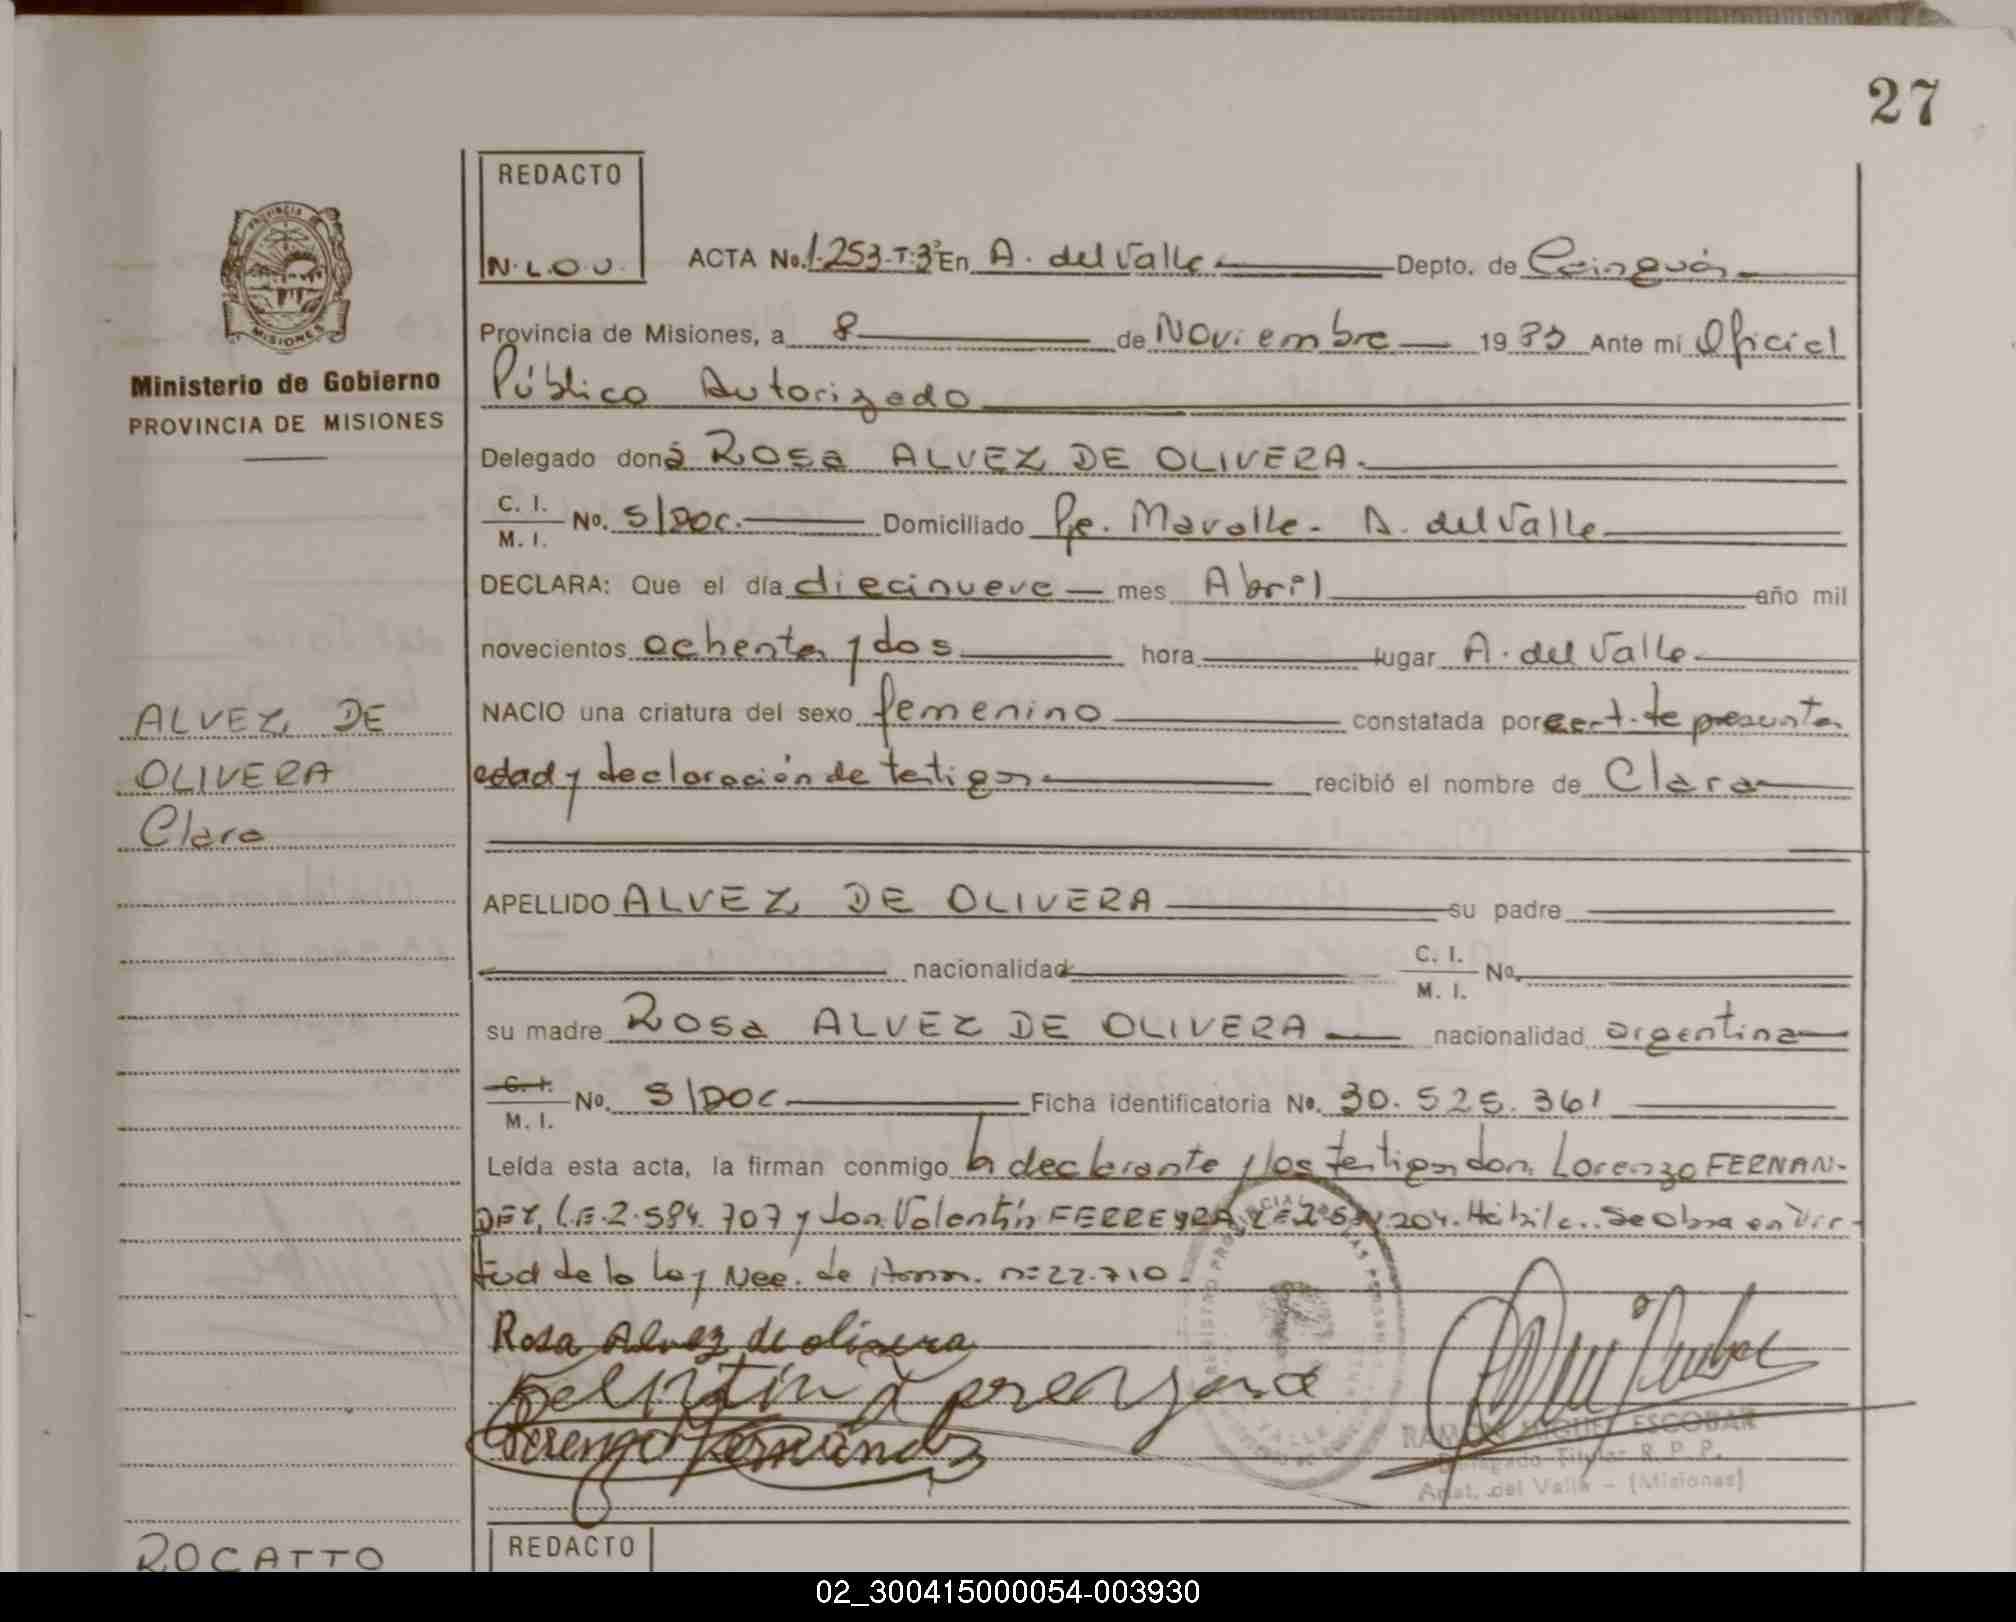 27
REDACTO
N.L.O.U.
ACTA No. 1.253-T:3º En A. del Valle Depto. de Cainguás
PROVINCIA DE
MISIONES
Provincia de Misiones, a 8 de Noviembre 1983 Ante mi Oficial
Ministerio de Gobierno
PROVINCIA DE MISIONES
Público Autorizado
Delegado doná Rosa ALVEZ DE OLIVERA.
C. I.
M. I. No. S/DOC. Domiciliado Pje. Mavalle- A. del Valle
DECLARA: Que el día diecinueve mes Abril año mil
novecientos ochenta y dos hora lugar A. del Valle
ALVEZ DE
OLIVERA
Clara
NACIO una criatura del sexo femenino constatada por cert. de presunta
edad y declaración de testigos recibió el nombre de Clara
APELLIDO ALVEZ DE OLIVERA su padre
nacionalidad C. I.
M. I. No.
su madre Rosa ALVEZ DE OLIVERA nacionalidad argentina
C. I.
M. I. No. S/DOC Ficha identificatoria No. 30.525.361
Leída esta acta, la firman conmigo la declarante y los testigos don Lorenzo FERNAN-
DEZ, L.E.2.584.707 y don Valentín FERREYRA, L.E. 204. Hábiles. Se obra en vir-
tud de la Ley Nac. de Honor. nº 22.710.
Rosa Alvez de olivera
Lorenzo Fernandez
REGISTRO PROVINCIAL DE LAS PERSONAS
RAMON MIGUEL ESCOBAR
Delegado Titular R. P. P.
Arist. del Valle - (Misiones)
ROCATTO
REDACTO
02_300415000054-003930